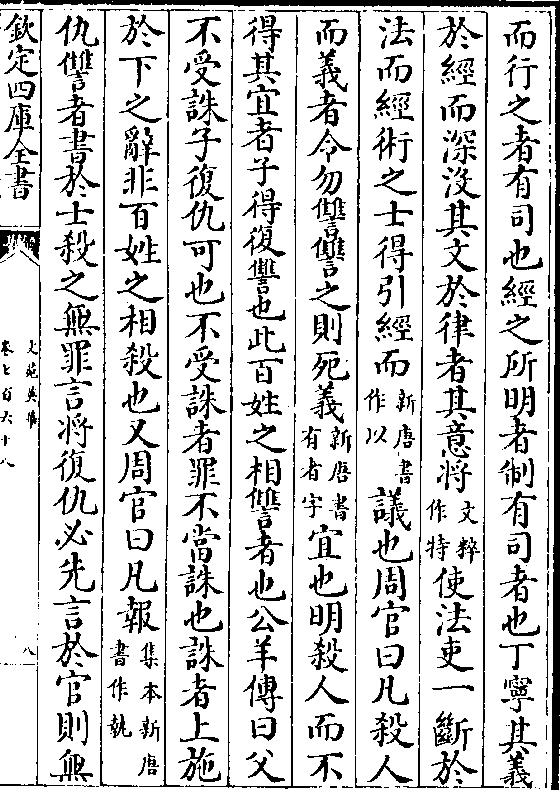 而行之者有司也經之所明者制有司者也丁寧其義
於經而深沒其文於律者其意將文粹作特使法吏一斷於
法而經術之士得引經而新唐書作以議也周官曰凡殺人
而義者令勿讐讐之則死義新唐書有者字宜也明殺人而不
得其宜者子得復讐也此百姓之相讐者也公羊傳曰父
不受誅子復仇可也不受誅者罪不當誅也誅者上施
於下之辭非百姓之相殺也又周官曰凡報集本新唐書作執
仇讐者書於士殺之無罪言將復仇必先言於官則無
欽定四庫全書
文苑英華
卷七百六十八
八